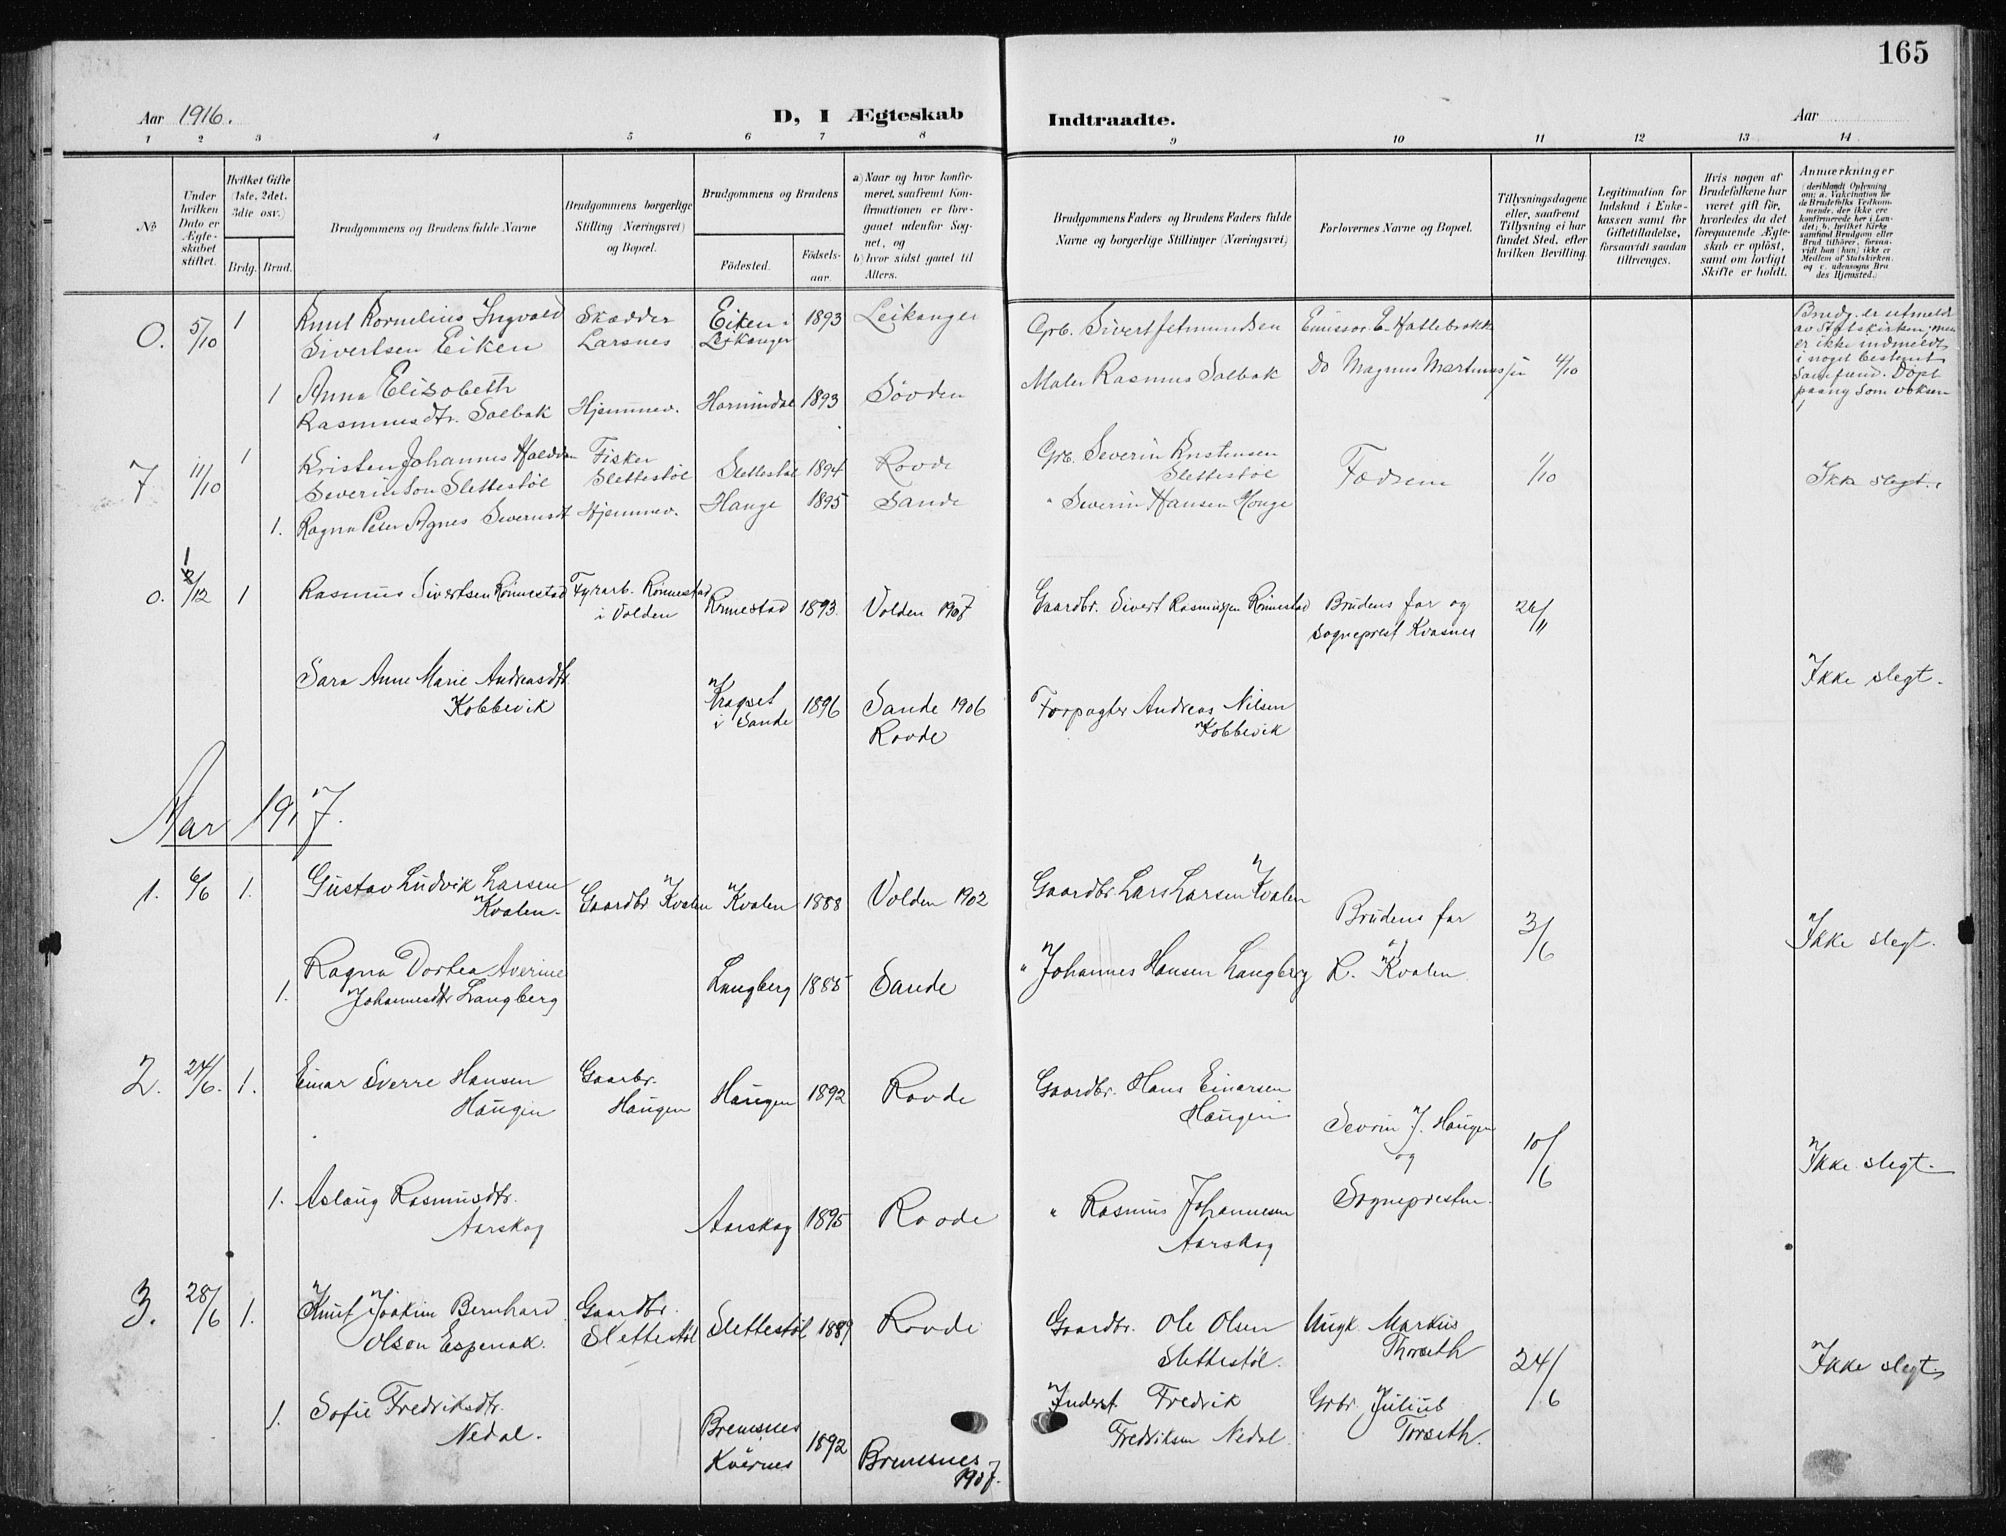 165
Aar 1916.
D, I Ægteskab Indtraadte.
Aar
1 2 3 4 5 6 7 8 9 10 11 12 13 14
No.
Under hvilken Dato er Ægteskabet stiftet.
Hvilket Gifte (1ste, 2det, 3die osv.)
Brdg. Brud.
Brudgommens og Brudens fulde Navne
Brudgommens borgerlige Stilling (Næringsvei) og Bopæl.
Brudgommens og Brudens
Fødested.
Fødselsaar.
a) Naar og hvor konfirmeret, saafremt Konfirmationen er foregaaet udenfor Sognet, og
b) hvor sidst gaaet til Alters.
Brudgommens Faders og Brudens Faders fulde Navne og borgerlige Stillinger (Næringsvei)
Forlovernes Navne og Bopæl.
Tillysningsdagene eller, saafremt Tillysning ei har fundet Sted, efter hvilken Bevilling.
Legitimation for Indskud i Enkekassen samt for Giftetilladelse, forsaavidt saadan tiltrænges.
Hvis nogen af Brudefolkene har været gift før, hvorledes da det foregaaende Ægteskab er opløst, samt om lovligt Skifte er holdt.
Anmærkninger
(deriblandt Oplysning om: a. Vakcination for de Brudefolks Vedkommende, der ikke ere konfirmerede her i Landet; b. hvilket Kirkesamfund Brudgom eller Brud tilhører, forsaavidt han (hun) ikke er Medlem af Statskirken, og c. udensogns Brudes Hjemsted.)
O. 5/10 1 Knut Kornelius Ingvald Skædder Eiken i 1893 Leikanger Grb. Sivert Jetmundsen Emissær E. Hallebrekke
Sivertsen Eiken Larsnes Leikanger
Brudg. er utmeldt
av Statskirken, men
er ikke indmeldt
i noget bestemt
Samfund. Døpt
paany som voksen
1 Anna Elisabeth
Rasmusdtr. Solbak Hjemmev. Hornindal 1893 Søvden Maler Rasmus Solbak Do Magnus Martinussen 4/10
7 11/10 1 Kristen Johannes Fisker Slettestøl 1894 Rovde Grb. Severin Kristensen
Severinson Slettestøl Slettestøl Slettestøl Fædrene 1/10 Ikke slegt.
1. Ragna Agnes Severinsdt Hjemmev. Hauge 1895 Sande " Severin Hansen Hauge
O. 2/12 1 Rasmus Sivertsen Rönnestad Fyrarb. Rönnestad Rönnestad 1893 Volden 1907 Gaardbr. Sivert Rasmussen Rönnestad Brudens far og 26/11
i Volden Sogneprest Kvasnes
Sara Anne Marie Andreasdtr. Ikke slegt.
Kobbevik Kragset 1896 Sande 1906 Forpagter Andreas Nilsen
i Sande Rovde Kobbevik
Aar 1917.
1. 6/6 1. Gustav Ludvik Larsen
Kvalen. Gaardbr Kvalen Kvalen 1888 Volden 1902 Gaardbr Lars Larsen Kvalen
Brudens far 3/6 Ikke slegt.
1. Ragna Dortea Averine
Johannesdtr Langberg Langberg 1885 Sande " Johannes Hansen Langberg L. Kvalen
2. 24/6. 1. Einar Sverre Hansen Gaarbr. Gaardbr. Hans Einarsen
Haugen Haugen Haugen 1892 Rovde Haugen
Sevrin J. Haugen 10/6
og Ikke slegt.
1. Aslaug Rasmusdtr. Sogneprestm.
Aarskog Aarskog 1895 Rovde " Rasmus Johannesen
Aarskog
3. 28/6 1. Knut Joakim Bernhard Gaardbr. Slettestøl 1889 Rovde Gaardbr. Ole Olsen Ungk. Markus
Olsen Espenak. Slettestøl Slettestøl. Thorseth
24/6 Ikke slegt
1. Sofie Fredriksdtr. Inderst Fredrik Grbr. Julius
Nedal. Bremsnes 1892 Bremsnes Fredriksen Nedal. Torseth.
Kvernes 1907.